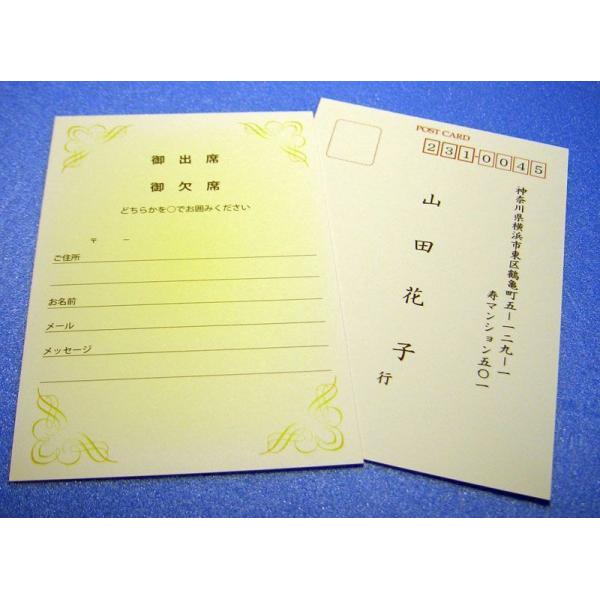 御出席
御欠席
どちらかを○でお囲みください
〒　－
ご住所
お名前
メール
メッセージ
POST CARD
231-0045
神奈川県横浜市東区鶴亀町五－一二九－一
寿マンション五〇一
山田花子
行